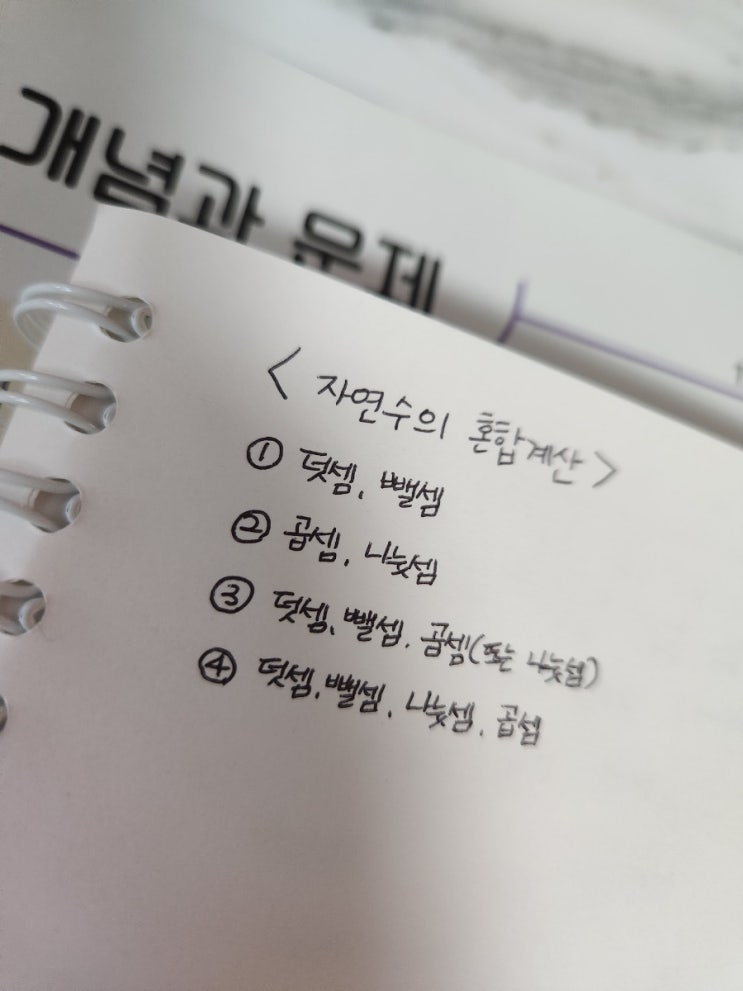 개념과 문제
< 자연수의 혼합계산 >
① 덧셈, 뺄셈
② 곱셈, 나눗셈
③ 덧셈, 뺄셈, 곱셈(또는 나눗셈)
④ 덧셈, 뺄셈, 나눗셈, 곱셈